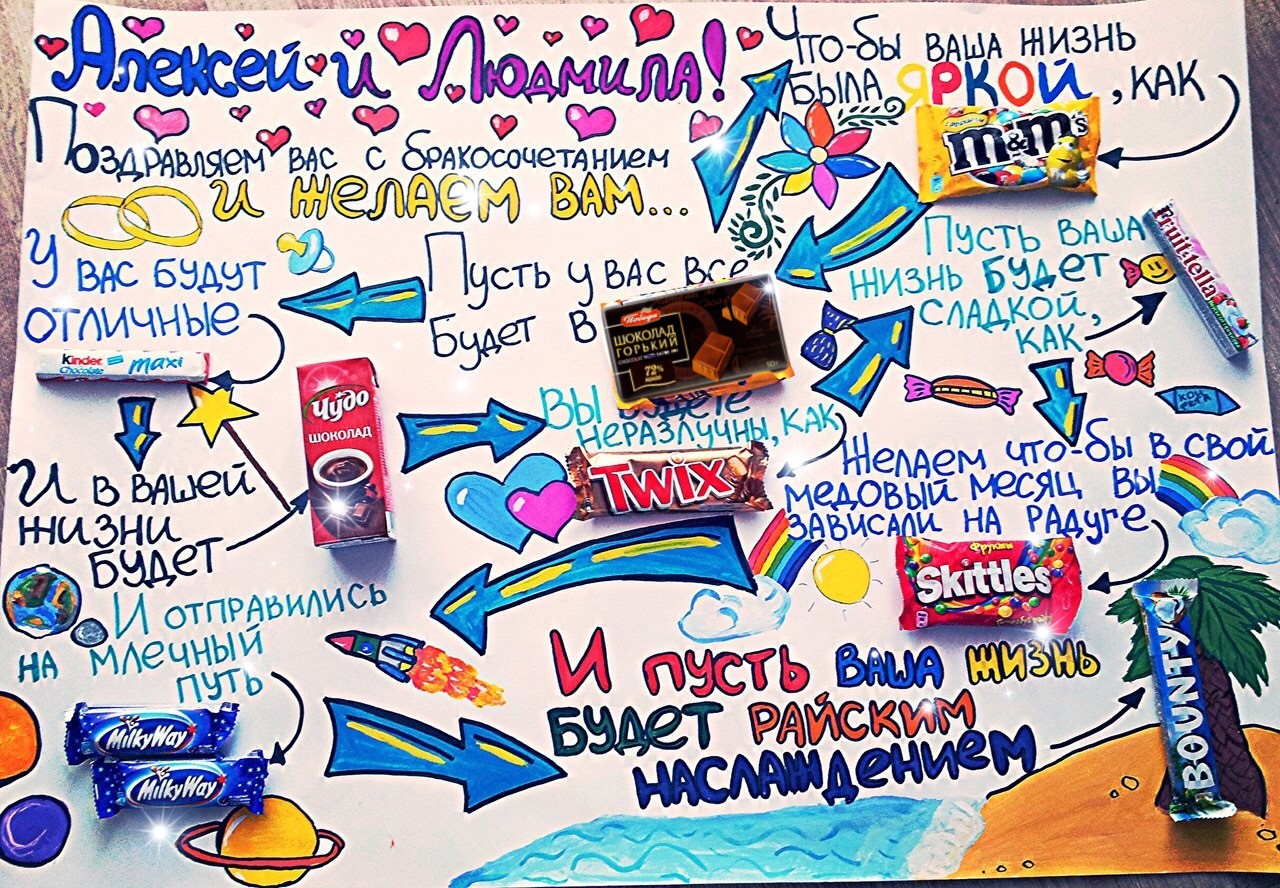 Алексей и Людмила!
Поздравляем вас с бракосочетанием
и желаем вам...
Что-бы ваша жизнь
была яркой, как
m&m's
Пусть у вас все
будет в
Победа
ШОКОЛАД
ГОРЬКИЙ
72%
У вас будут
отличные
kinder
Chocolate
maxi
И в вашей
жизни
будет
Чудо
ШОКОЛАД
Вы будете
неразлучны, как
TWIX
Пусть ваша
жизнь будет
сладкой,
как
Fruit-tella
КОН
ФЕТА
Желаем что-бы в свой
медовый месяц вы
зависали на радуге
Фрукты
Skittles
И отправились
на млечный
путь
MilkyWay
MilkyWay
И пусть ваша жизнь
будет райским
наслаждением
BOUNTY